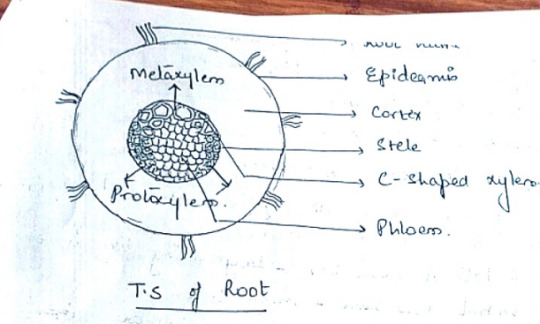 Metaxylem
Epidermis
Cortex
Stele
C-shaped xylem
Protoxylem.
Phloem.
T.S of Root